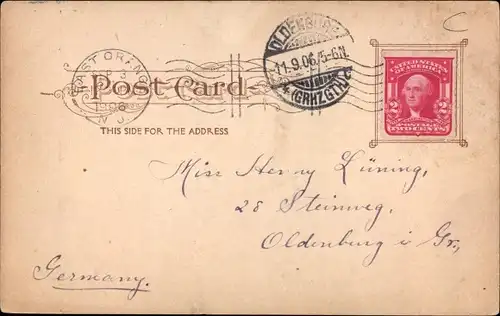 EAST ORANGE
1906
N.J.
Post Card
OLDENBURG
11.9.06.5-6N.
(GRHZGTH.)
UNITED STATES
OF AMERICA
2 2
POSTAGE
TWO CENTS
THIS SIDE FOR THE ADDRESS
Miss Henny Lüning,
28 Steinweg,
Oldenburg i Gr,
Germany.